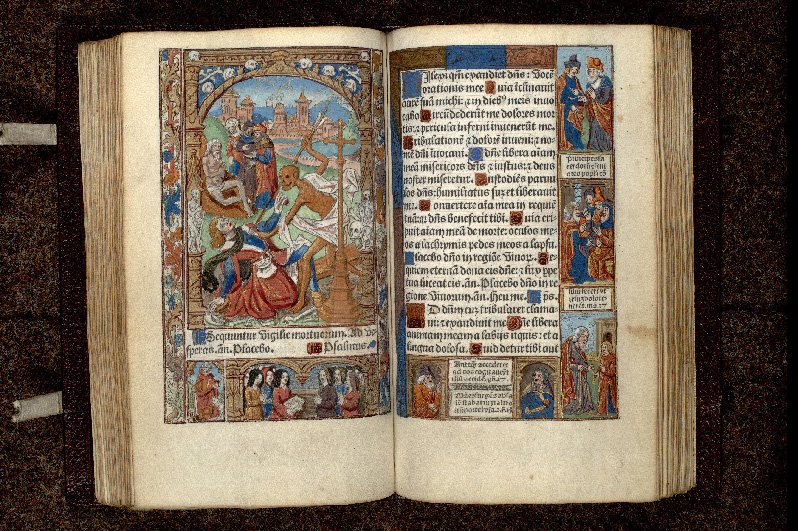 Sequuntur vigilie mortuorum. Ad ve
speras. añ. Placebo. Psalmus.
Ilexi qm̄ exaudiet dn̄s: vocē
orationis mee Quia iclinauit
aurē suā michi: ⁊ in dieb⁹ meis inuo
cabo Circūdederūt me dolores mor
tis: ⁊ pericula inferni inuenerūt me.
Tribulationē ⁊ dolorē inueni: ⁊ no
mē dn̄i inuocaui. O dn̄e libera aīam
meā misericors dn̄s ⁊ iustus: ⁊ deus
noster miseretur. Custodiēs paruu
los dn̄s: humiliatus suȝ et liberauit
me. Conuertere aīa mea in requiē
tuā: qr dn̄s benefecit tibi. Quia eri
puit aīam meā de morte: oculos me
os a lachrymis pedes meos a lapsu.
Placebo dn̄o in regiōe viuoȝ. Re
quiem eternā dona eis dn̄e: ⁊ lux ppe
tua luceat eis. añ. Placebo dn̄o in re
gione viuorum. añ. Heu me. ps.
D dn̄m cuȝ tribularer clama
ui: ⁊ exaudiuit me Dn̄e libera
animam meam a labijs iniquis: et a
lingua dolosa. Quid detur tibi aut